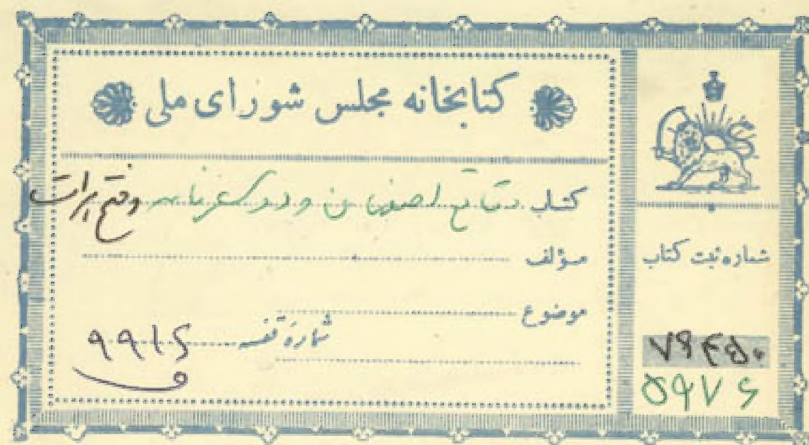 کتابخانه مجلس شورای ملی
کتاب وقایع اصفهان و دو سفرنامه و فتح هرات
مؤلف
موضوع
شماره قفسه ۹۹۱۶
شماره ثبت کتاب
۷۹۴۵۰
۵۹۷۶